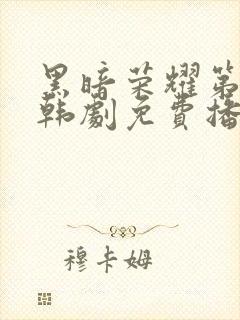 黑暗荣耀第
韩剧免费播
穆卡姆